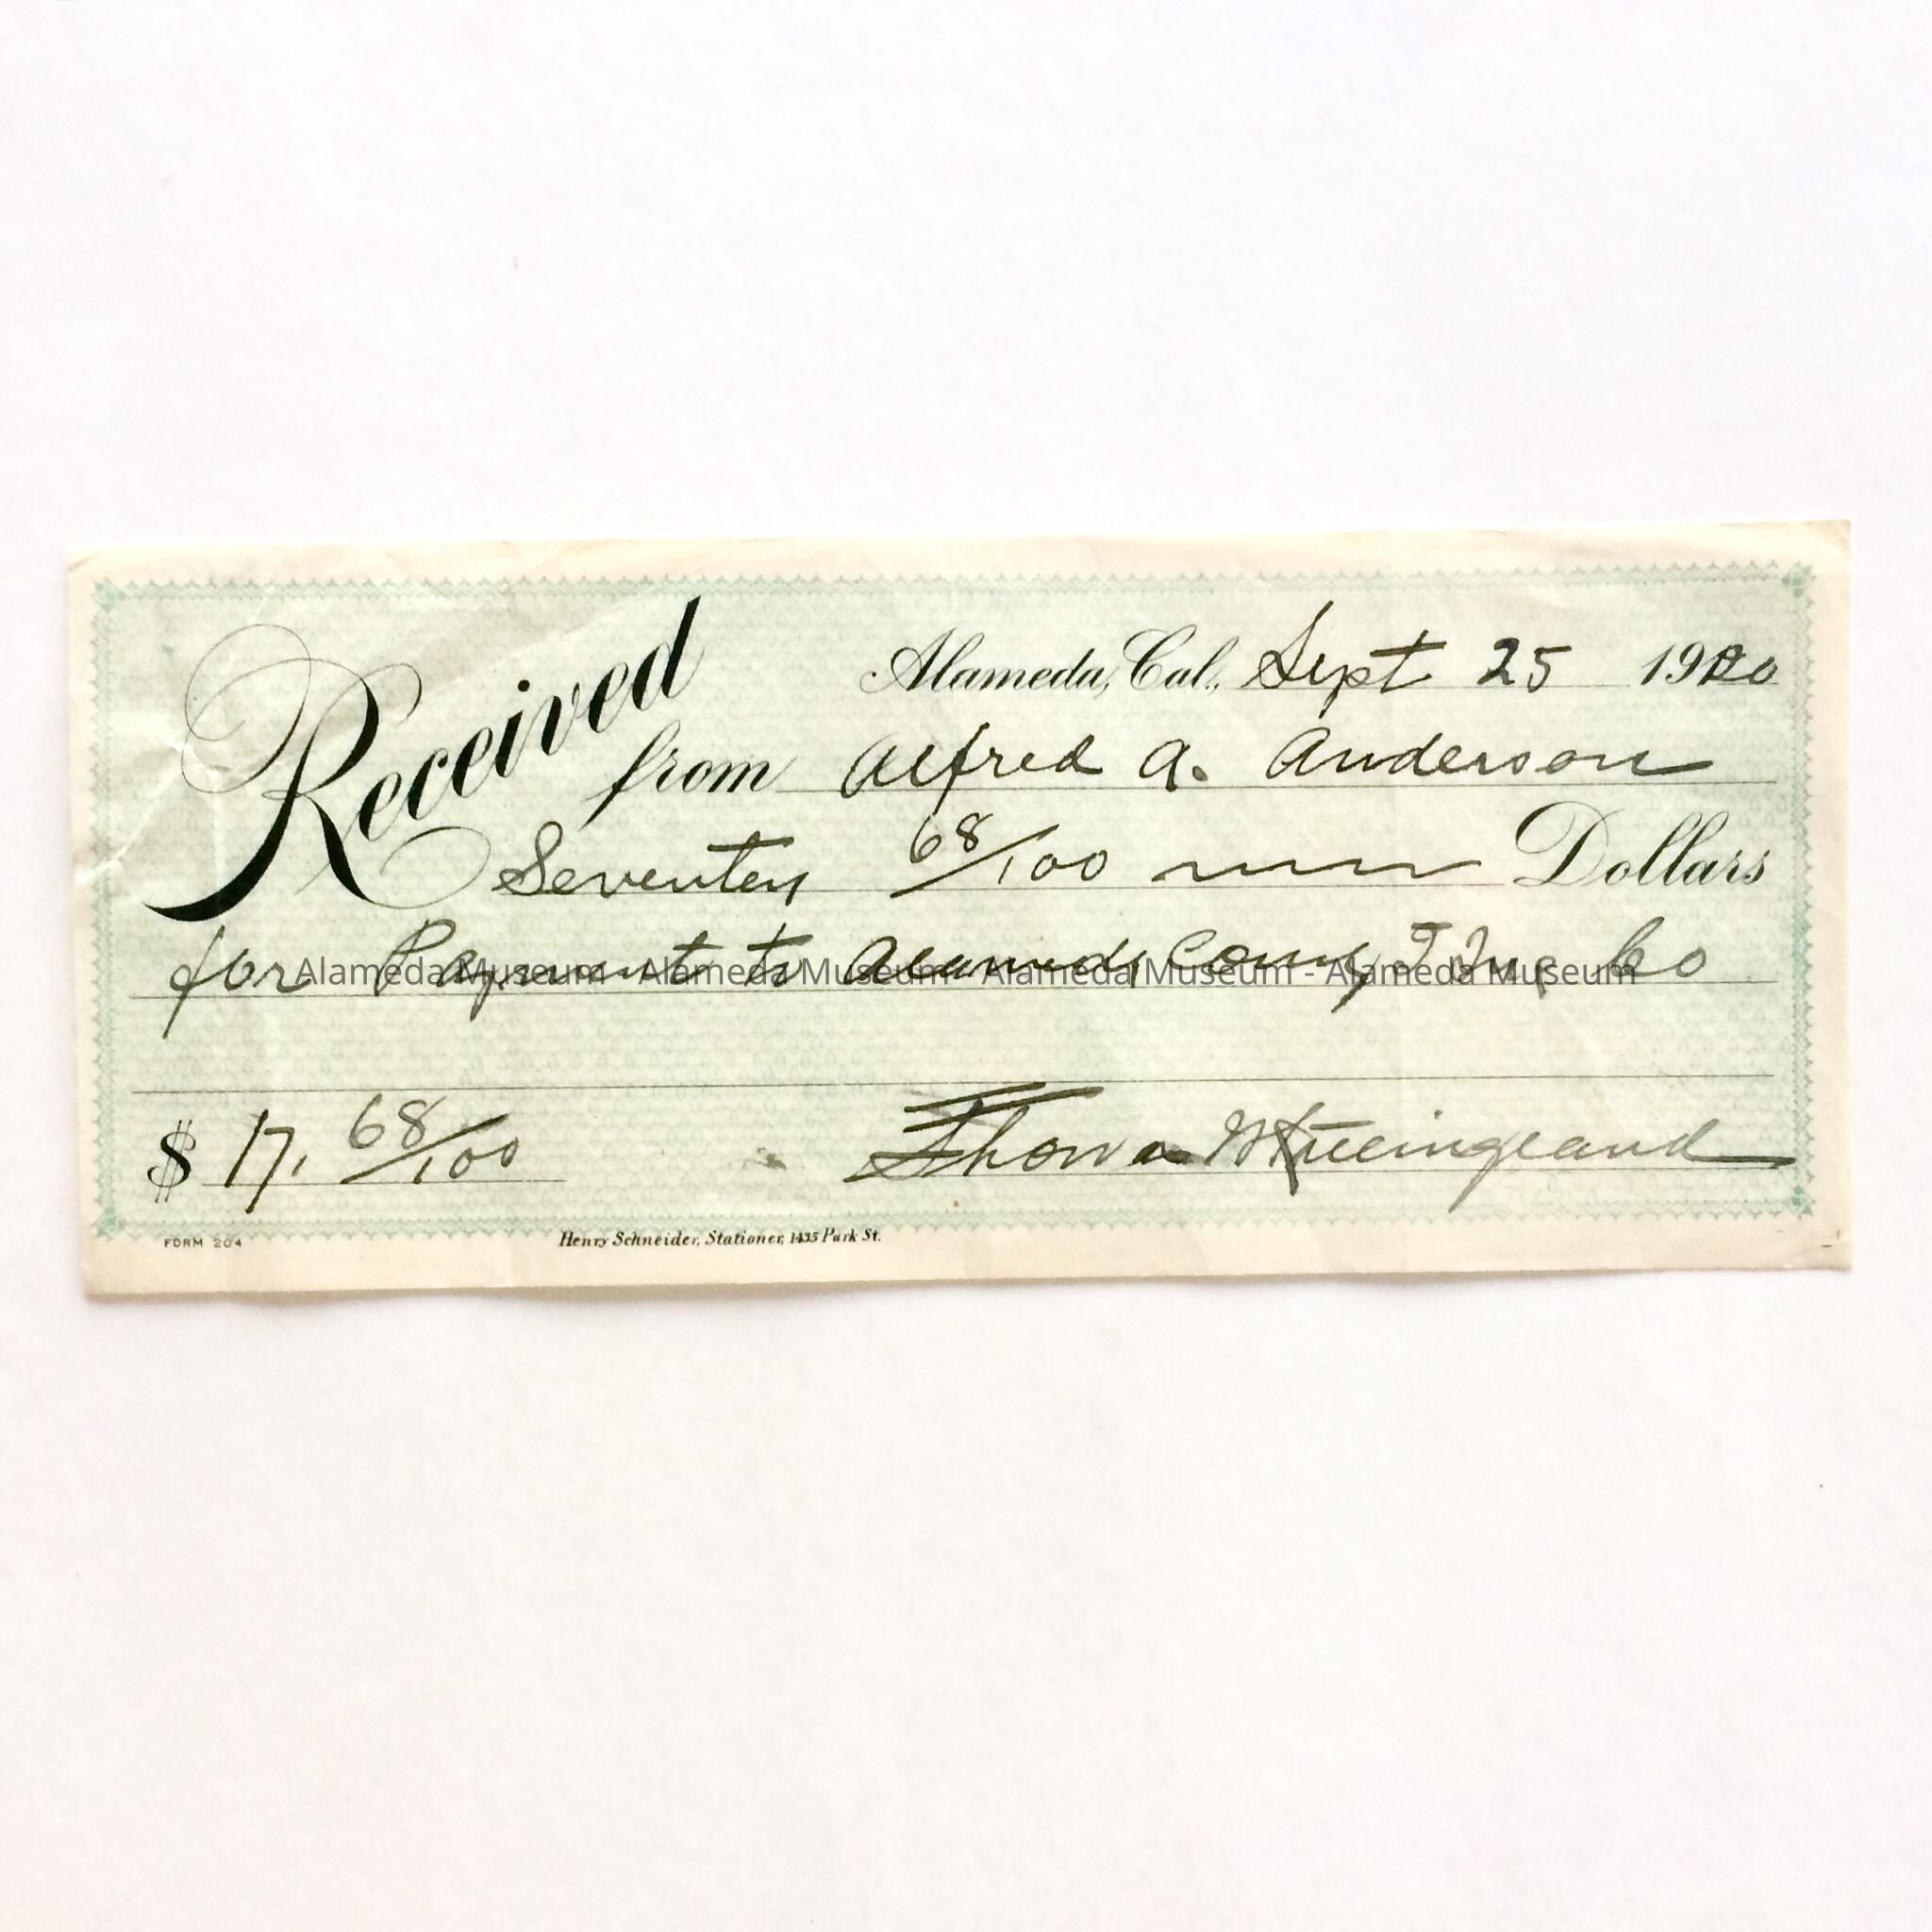 Received
Alameda, Cal., Sept 25 1920
from Alfred A. Anderson
Seventen 68/100 Dollars
for Payment to Alameda County
Alameda Museum - Alameda Museum - Alameda Museum - Alameda Museum
$ 17. 68/100
FORM 204
Henry Schneider, Stationer, 1435 Park St.